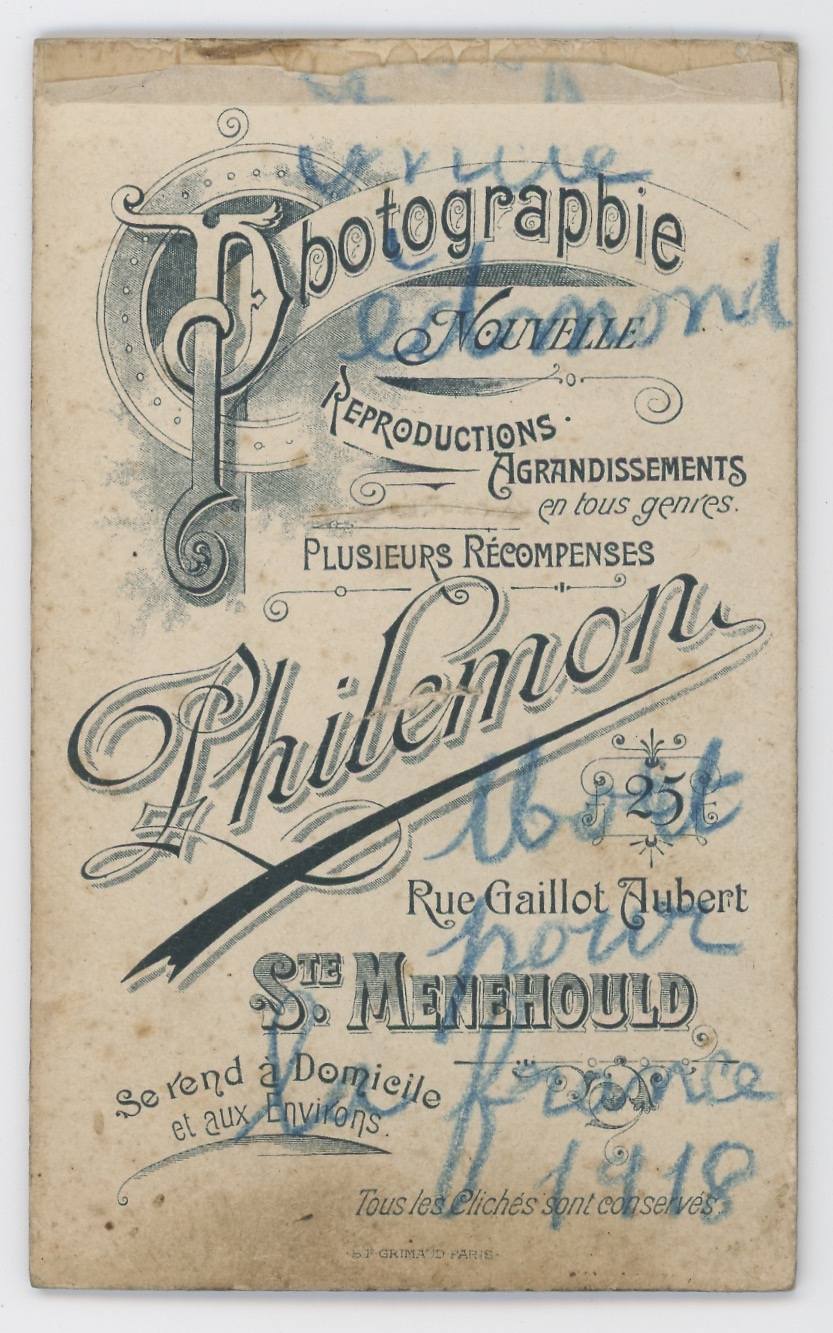 Photographie
edmond
NOUVELLE
REPRODUCTIONS.
AGRANDISSEMENTS
en tous genres.
PLUSIEURS RÉCOMPENSES
Philemon
25
Rue Gaillot Aubert
pour
STE MENEHOULD
la france
Se rend à Domicile
et aux Environs.
1918
Tous les Clichés sont conservés.
B.P. GRIMAUD PARIS